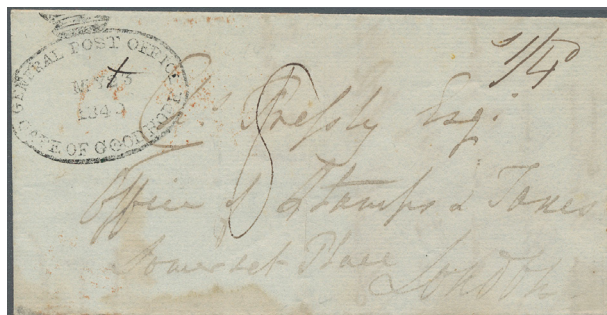 GENERAL POST OFFICE
1845
CAPE OF GOOD HOPE
1/4
8
Chs Pressly Esqr
Office of Stamps & Taxes
Somerset Place
London